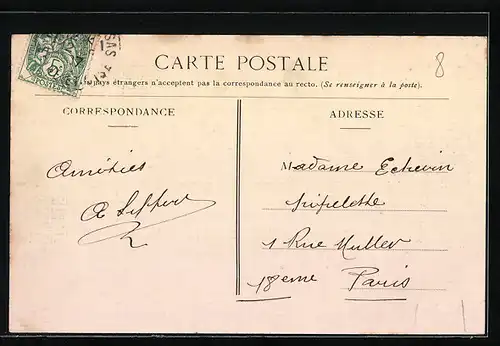 CARTE POSTALE
8
pays étrangers n'acceptent pas la correspondance au recto. (Se renseigner à la poste).
CORRESPONDANCE
ADRESSE
Amitiés
Madame Echevin
1 Rue Muller
18eme Paris
5
POSTES